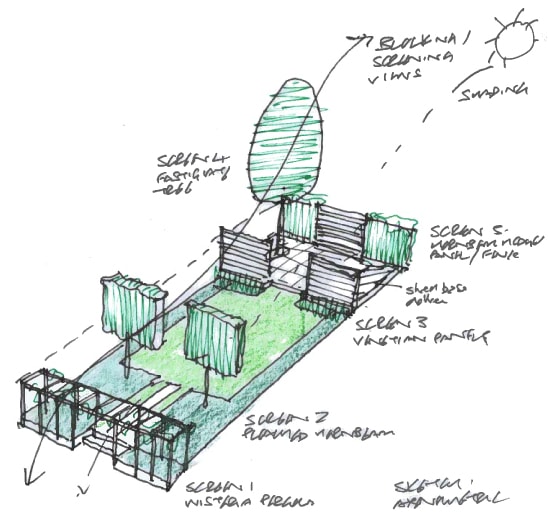 BLOCKING /
SCREENING
VIEWS
SHADING
SCREEN 4
FASTIGIATE
TREE
SCREEN 5-
HORNBEAM
PANEL / FENCE
SCREEN 3
VENETIAN PANELS
SCREEN 2
PLEACHED HORNBEAM
SCREEN 1
WISTERIA PERGOLA
SKETCH:
AXONOMETRIC